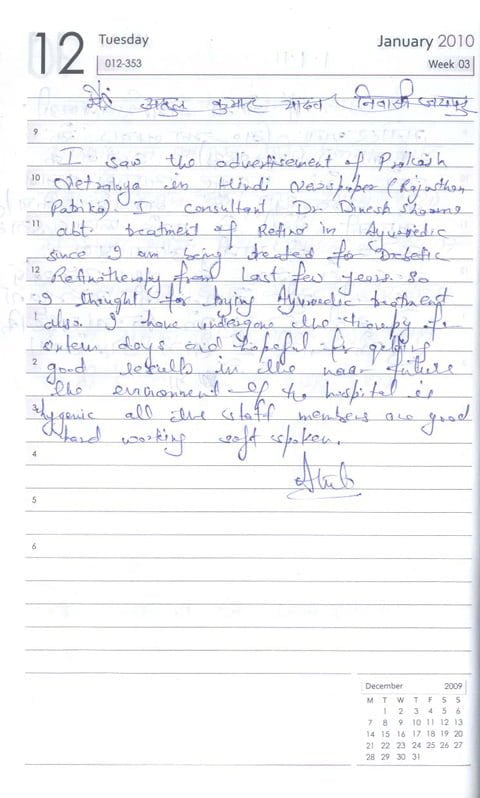 12
Tuesday
January 2010
012-353
Week 03
मैं अतुल कुमार यादव निवासी जयपुर
9
I saw the advertisement of Prakash
10 Netralaya in Hindi Newspaper (Rajasthan
Patrika). I consultant Dr. Dinesh Sharma
11 abt treatment of Retina in Ayurvedic
since I am being treated for Diabetic
12 Retinotherapy from last few years. so
I thought for trying Ayurvedic treatment
1 also. I have undergone the therapy of
days and hopeful for getting
2 good results in the near future
the environment of the hospital is
3 hygenic all the staff members are good
hard working soft spoken.
4
5
6
December 2009
M T W T F S S
1 2 3 4 5 6
7 8 9 10 11 12 13
14 15 16 17 18 19 20
21 22 23 24 25 26 27
28 29 30 31